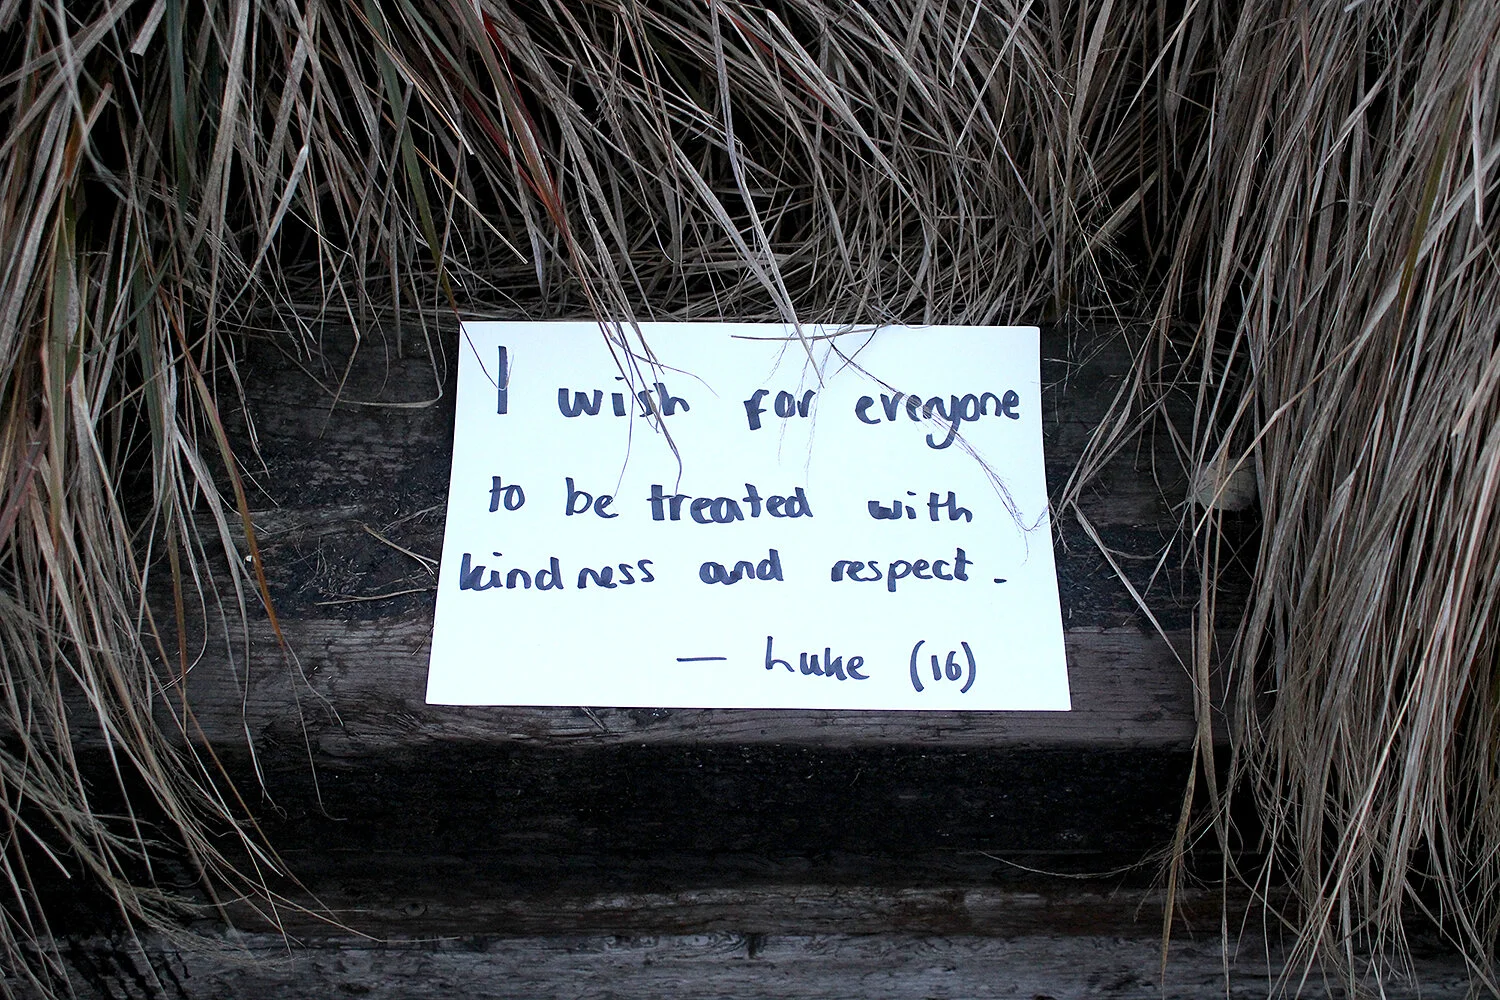 I wish for everyone
to be treated with
kindness and respect.
— Luke (16)